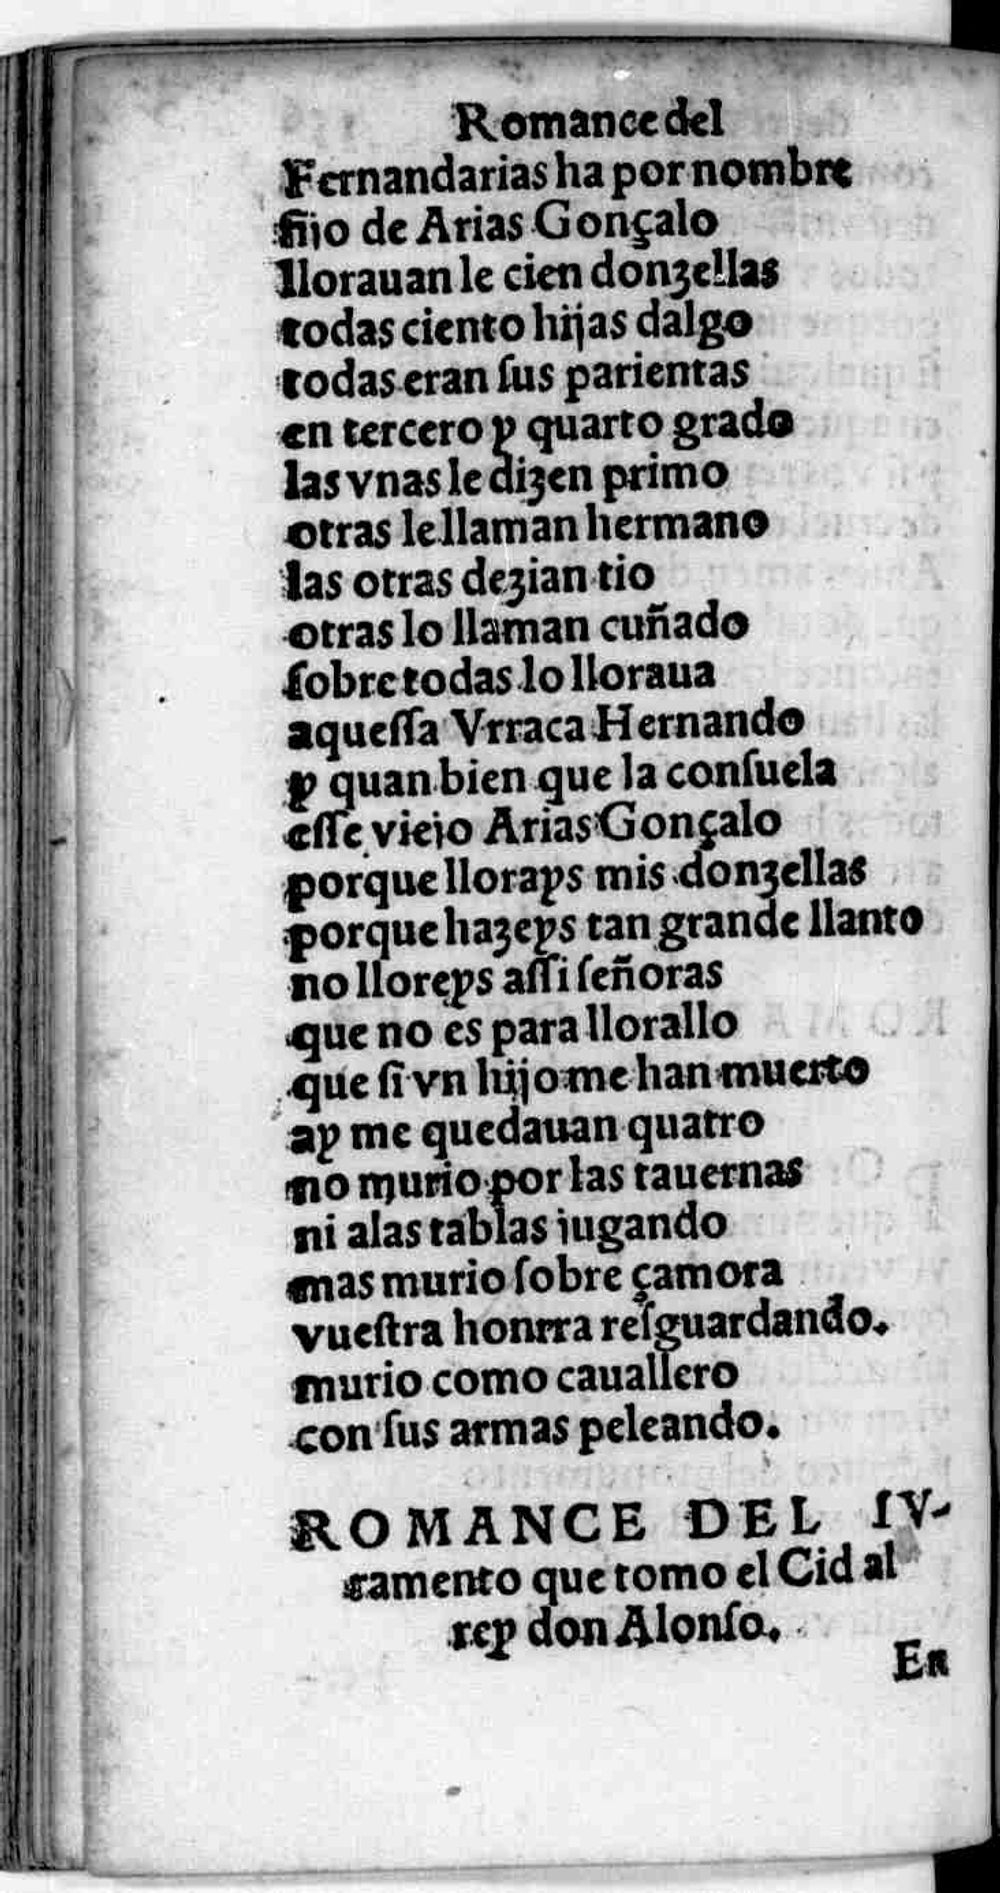 Romance del
Fernandarias ha por nombre
fijo de Arias Gonçalo
llorauan le cien donzellas
todas ciento hijas dalgo
todas eran ſus parientas
en tercero y quarto grado
las vnas le dizen primo
otras le llaman hermano
las otras dezian tio
otras lo llaman cuñado
ſobre todas lo lloraua
aqueſſa Vrraca Hernando
y quan bien que la conſuela
eſſe viejo Arias Gonçalo
porque llorays mis donzellas
porque hazeys tan grande llanto
no lloreys aſſi ſeñoras
que no es para llorallo
que ſi vn hijo me han muerto
ay me quedauan quatro
no murio por las tauernas
ni alas tablas jugando
mas murio ſobre çamora
vueſtra honrra reſguardando.
murio como cauallero
con ſus armas peleando.
ROMANCE DEL IV-
ramento que tomo el Cid al
rey don Alonſo.
En